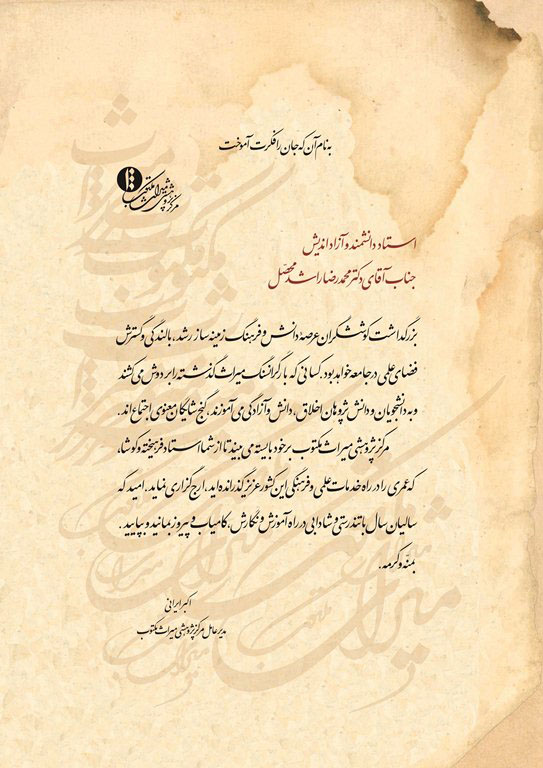 به نام آن که جان را فکرت آموخت
مرکز پژوهشی میراث مکتوب
استاد دانشمند و آزاداندیش
جناب آقای دکتر محمدرضا راشد محصّل
بزرگداشت کوششگران عرصهٔ دانش و فرهنگ زمینه‌ساز رشد، بالندگی و گسترش
فضای علمی در جامعه خواهد بود. کسانی که بار گرانسنگ میراث گذشته را بر دوش می‌کشند
و به دانشجویان و دانش‌پژوهان اخلاق، دانش و آزادگی می‌آموزند، گنج شایگان معنوی اجتماع‌اند.
مرکز پژوهشی میراث مکتوب بر خود بایسته می‌بیند تا از شما استاد فرهیخته و کوشا،
که عمری را در راه خدمات علمی و فرهنگی این کشور عزیز گذرانده‌اید، ارج‌گزاری نماید. امید که
سالیان سال با تندرستی و شادابی در راه آموزش و نگارش، کامیاب و پیروز بمانید و بپایید.
بمنّه و کرمه.
اکبر ایرانی
مدیرعامل مرکز پژوهشی میراث مکتوب